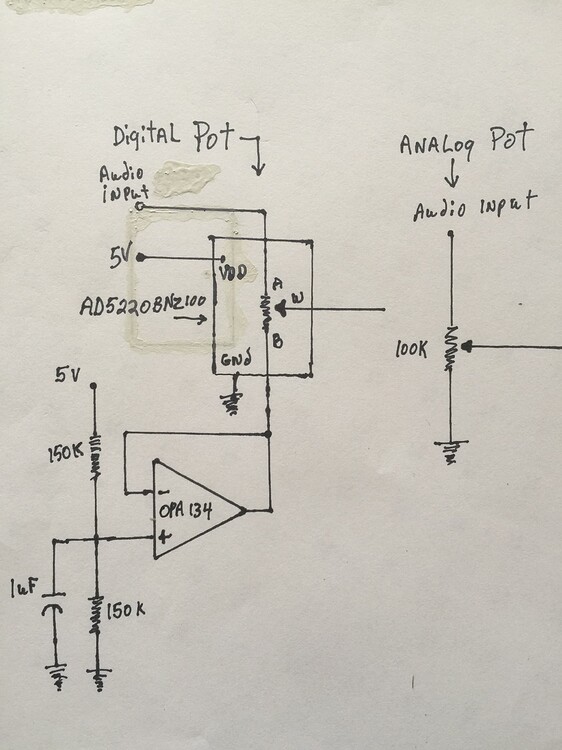 Digital Pot
Audio
input
5V
VDD
A
W
B
AD5220BNZ100
GND
5V
150K
OPA 134
-
+
1uF
150K
Analog Pot
Audio Input
100K